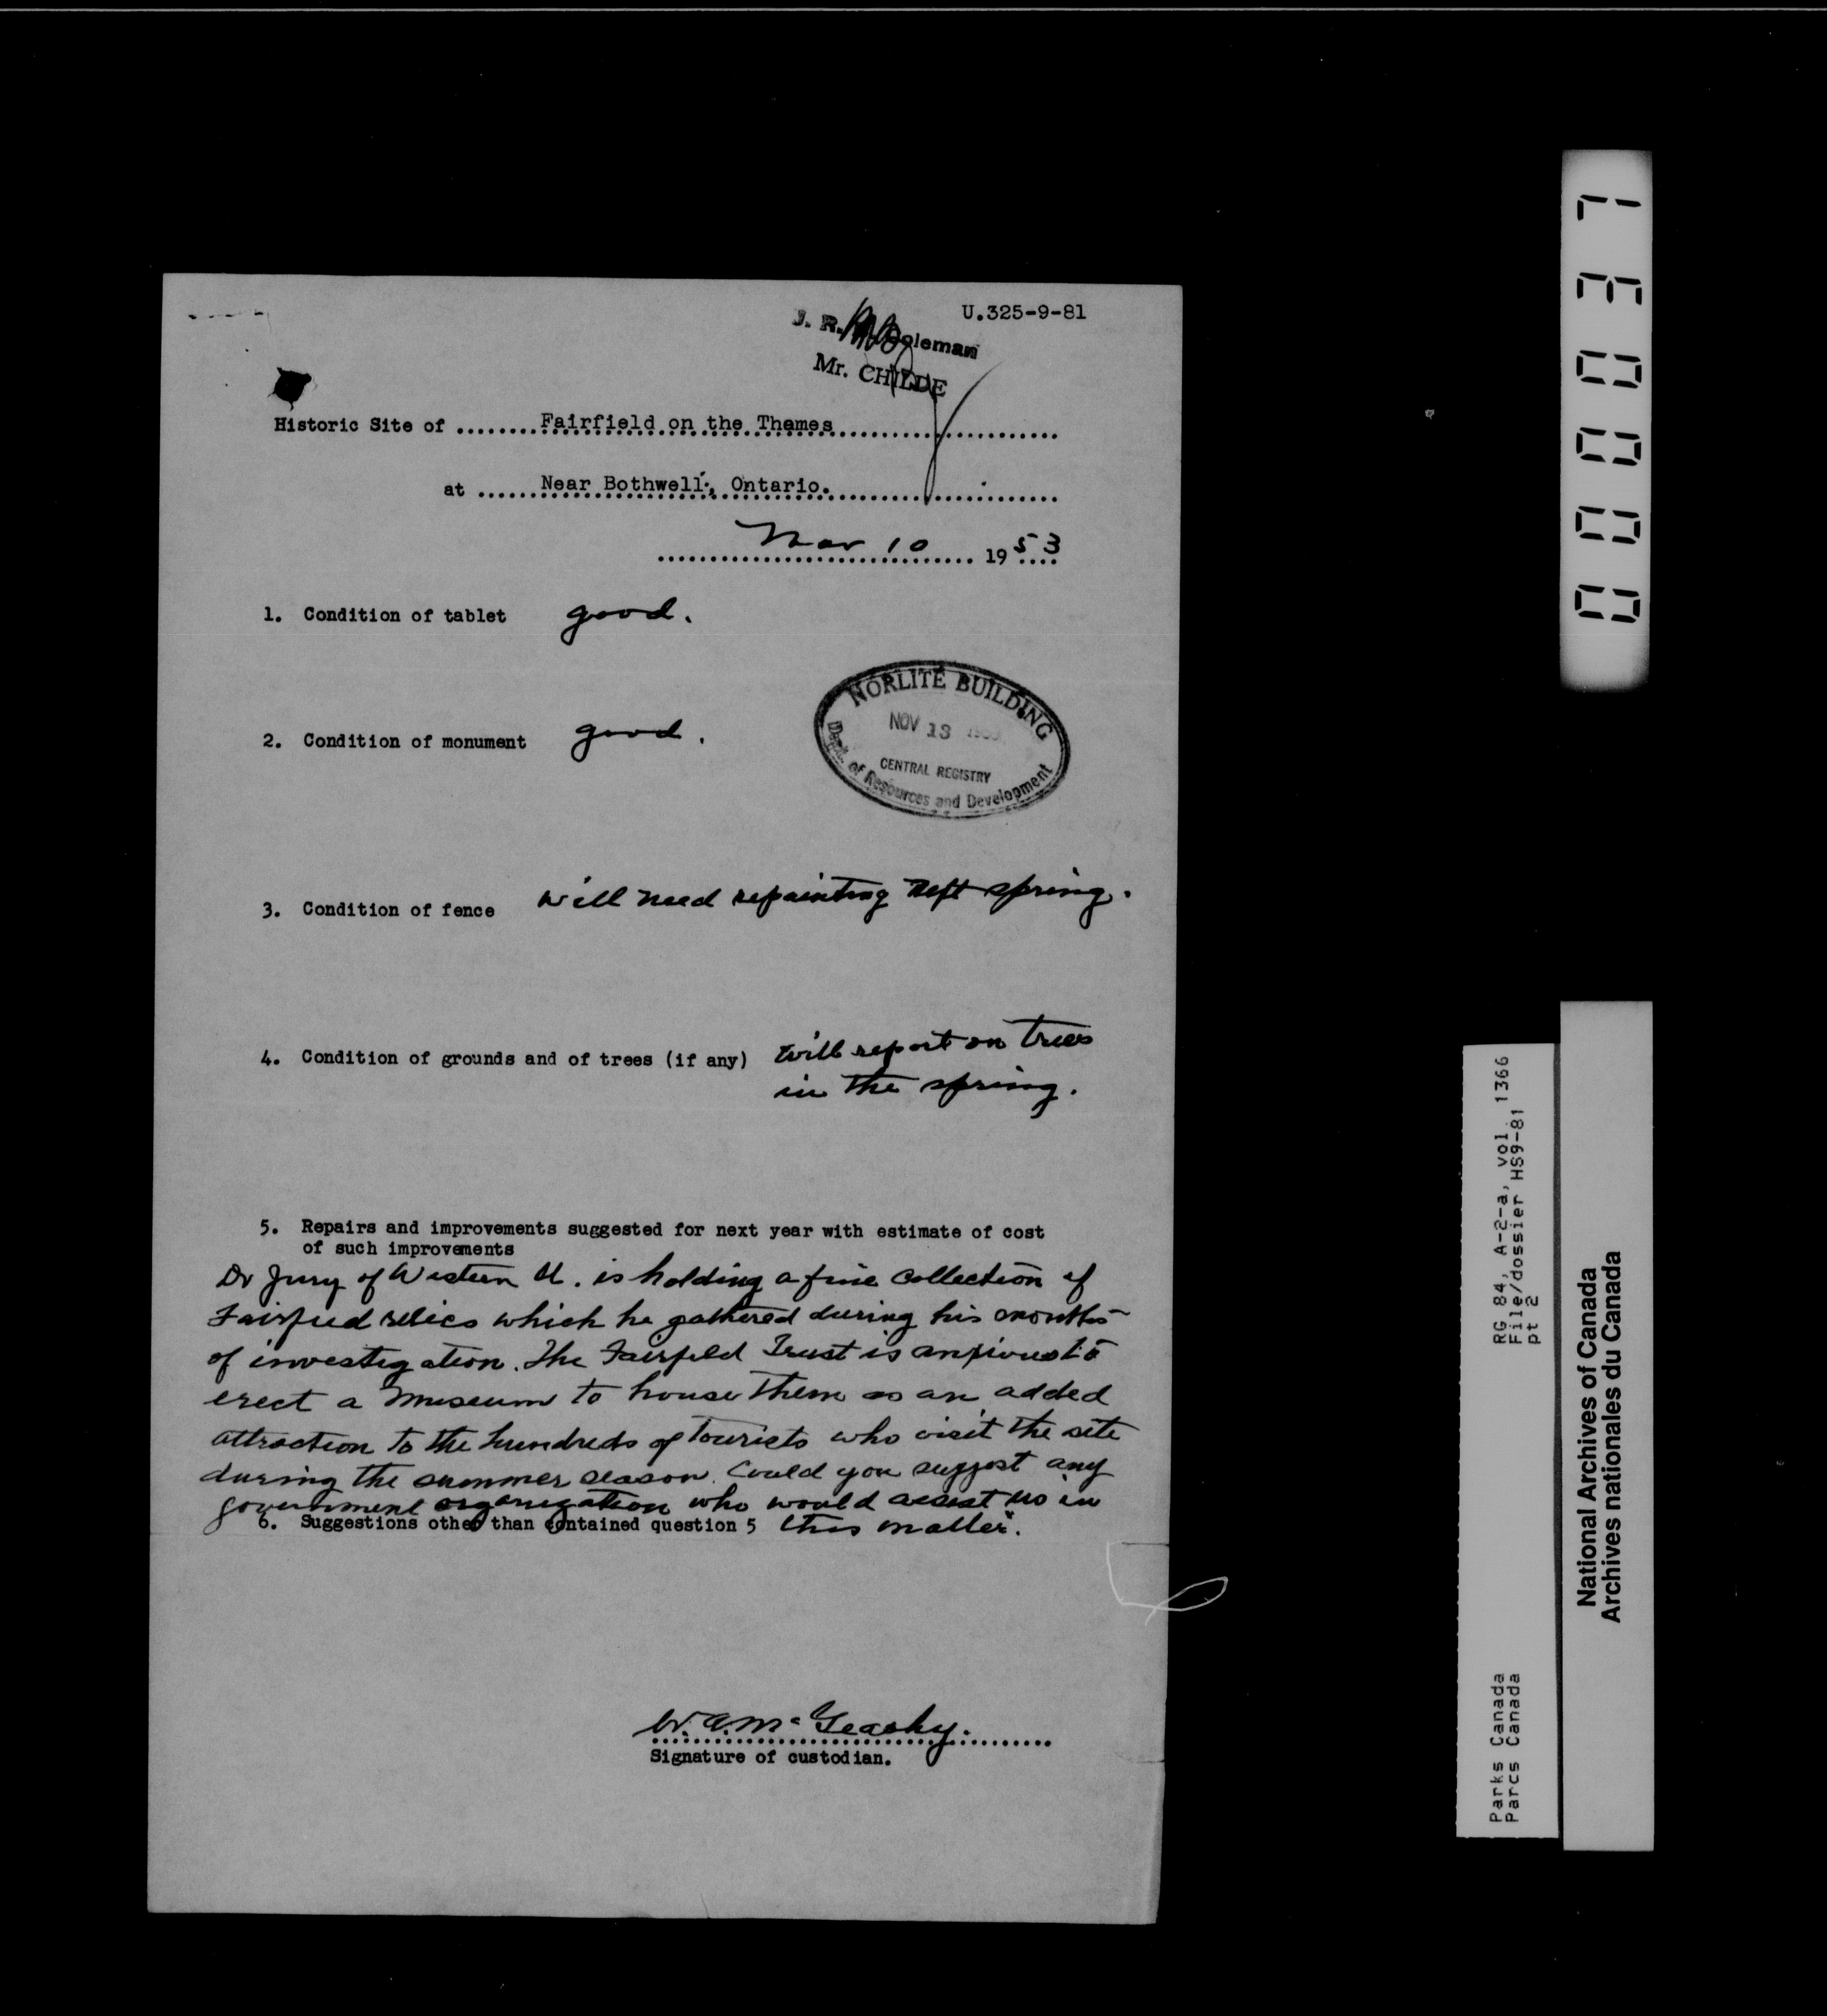 U.325-9-81
J. R. Coleman
Mr. CHILDE
Historic Site of ........Fairfield on the Thames........
at ......Near Bothwell, Ontario.......
Nov 10 1953
1. Condition of tablet good.
NORLITE BUILDING
NOV 13
CENTRAL REGISTRY
Dept. of Resources and Development
2. Condition of monument good.
3. Condition of fence will need repainting next spring.
4. Condition of grounds and of trees (if any) will report on trees
in the spring.
5. Repairs and improvements suggested for next year with estimate of cost
of such improvements
Dr Jury of Western U. is holding a fine collection of
Fairfield relics which he gathered during his months
of investigation. The Fairfield Trust is anxious to
erect a museum to house them as an added
attraction to the hundreds of tourists who visit the site
during the summer season. Could you suggest any
government organization who would assist us in
6. Suggestions other than contained question 5 this matter.
W. A. McGeachy.
Signature of custodian.
000037
RG 84, A-2-a, vol. 1366
File/dossier HS9-81
pt 2
Parks Canada
Parcs Canada
National Archives of Canada
Archives nationales du Canada